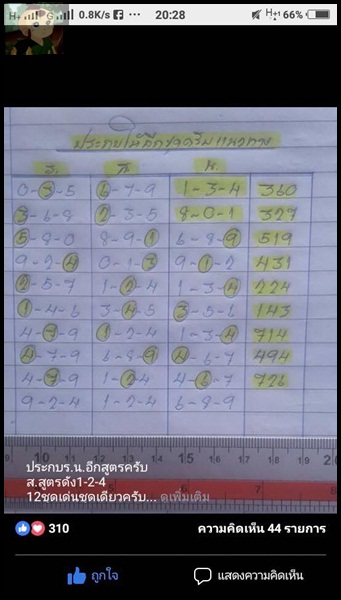 H+ G 0.8K/s ••• 20:28 H+↑ 66%
ร. ส. น.
0-3-5 6-7-9 1-3-4 360
3-6-8 2-3-5 8-0-1 327
5-8-0 8-9-1 6-8-9 519
9-2-4 0-1-3 9-1-2 431
2-5-7 1-2-4 1-3-4 224
1-4-6 3-4-5 3-5-6 143
4-7-9 1-2-4 1-3-4 714
4-7-9 6-8-9 4-6-7 494
4-7-9 1-2-4 4-6-7 726
9-2-4 1-2-4 6-8-9
ประกบร.น.อีกสูตรครับ
ส.สูตรดัง1-2-4
12ชุดเด่นชุดเดียวครับ... ดูเพิ่มเติม
310 ความคิดเห็น 44 รายการ
ถูกใจ แสดงความคิดเห็น